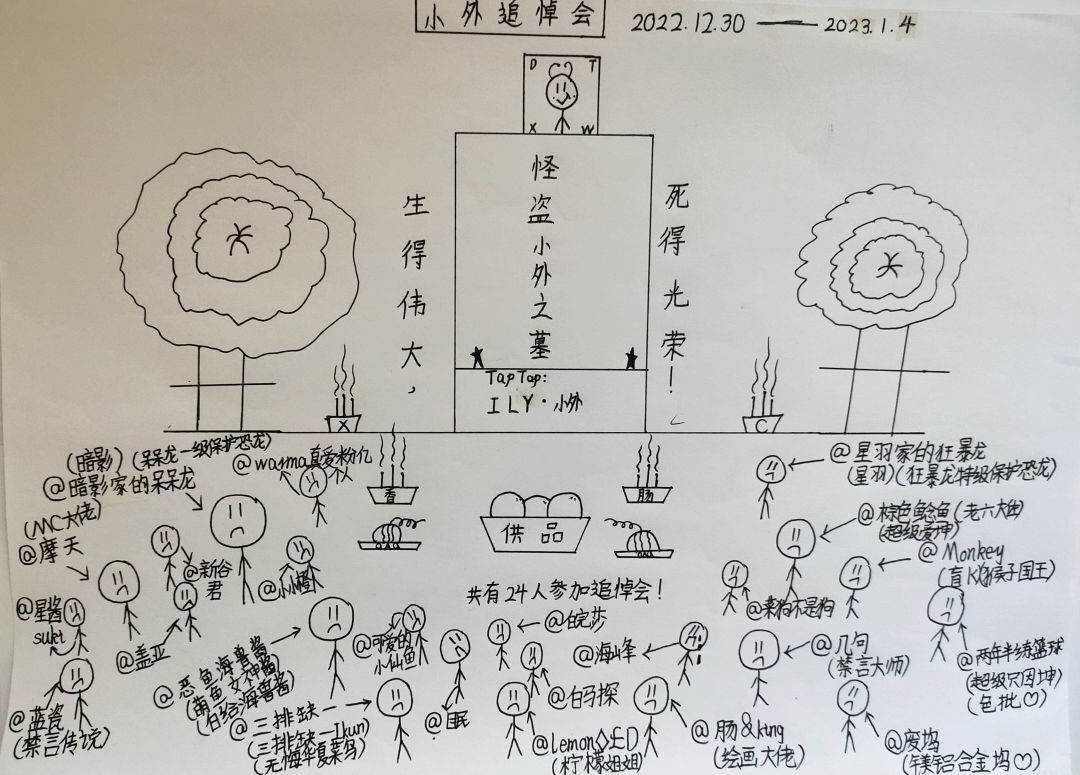 小外追悼会
2022.12.30 —— 2023.1.4
D T
X W
怪盗小外之墓
生得伟大，
死得光荣！
TapTap:
ILY·小外
X
C
香
肠
供品
共有24人参加追悼会！
(暗影)(呆呆龙一级保护恐龙)
@暗影家的呆呆龙
@warma真爱粉亿
个人
(MC大佬)
@摩天
@新谷
君
@小小橙
@星酱
sukt
@盖亚
@蓝瓷
(禁言传说)
@恶鱼海兽酱
(萌鱼女神酱)
(白给海兽酱)
@三排缺一Ikun
(三排缺一Ikun)
(无悔华夏菜鸟)
@可爱的
小仙鱼
@眠
@皖莎
@海峰
@白玛探
@lemon
(柠檬姐姐)
@肠&king
(绘画大佬)
@几句
(禁言大师)
@废坞
(镁铝合金坞♡)
@两年半练篮球
(超级只因坤)
(包批♡)
@来狗不是狗
@Monkey
(盲人猴子国王)
@棕色鲶鱼(老六大鱼)
(超级爱坤)
@星羽家的狂暴龙
(星羽)(狂暴龙特级保护恐龙)